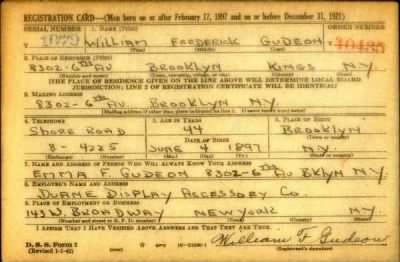 REGISTRATION CARD—(Men born on or after February 17, 1897 and on or before December 31, 1921)
SERIAL NUMBER 1. NAME (Print) ORDER NUMBER
WILLIAM FREDERICK GUDEON 10485
(First) (Middle) (Last)
2. PLACE OF RESIDENCE (Print)
8302-6TH AV BROOKLYN KINGS N.Y.
(Number and street) (Town, township, village, or city) (County) (State)
[THE PLACE OF RESIDENCE GIVEN ON THE LINE ABOVE WILL DETERMINE LOCAL BOARD
JURISDICTION; LINE 2 OF REGISTRATION CERTIFICATE WILL BE IDENTICAL]
3. MAILING ADDRESS
8302-6TH AV. BROOKLYN N.Y.
[Mailing address if other than place indicated on line 2. If same insert word same]
4. TELEPHONE 5. AGE IN YEARS 6. PLACE OF BIRTH
SHORE ROAD 44 BROOKLYN
DATE OF BIRTH (Town or county)
8-4225 JUNE 4 1897 N.Y.
(Exchange) (Number) (Mo.) (Day) (Yr.) (State or country)
7. NAME AND ADDRESS OF PERSON WHO WILL ALWAYS KNOW YOUR ADDRESS
EMMA F. GUDEON 8302-6TH AV BKLYN N.Y.
8. EMPLOYER'S NAME AND ADDRESS
DUANE DISPLAY ACCESSORY CO.
9. PLACE OF EMPLOYMENT OR BUSINESS
143 W. BROADWAY NEW YORK NY
(Number and street or R. F. D. number) (Town) (County) (State)
I AFFIRM THAT I HAVE VERIFIED ABOVE ANSWERS AND THAT THEY ARE TRUE.
D. S. S. Form 1
(Revised 1-1-42) William F Gudeon
(Registrant's signature)